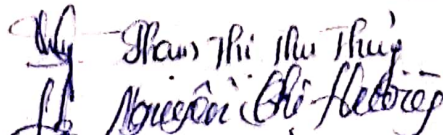 Phạm Thị Thu Thủy
Nguyễn Thị Hường